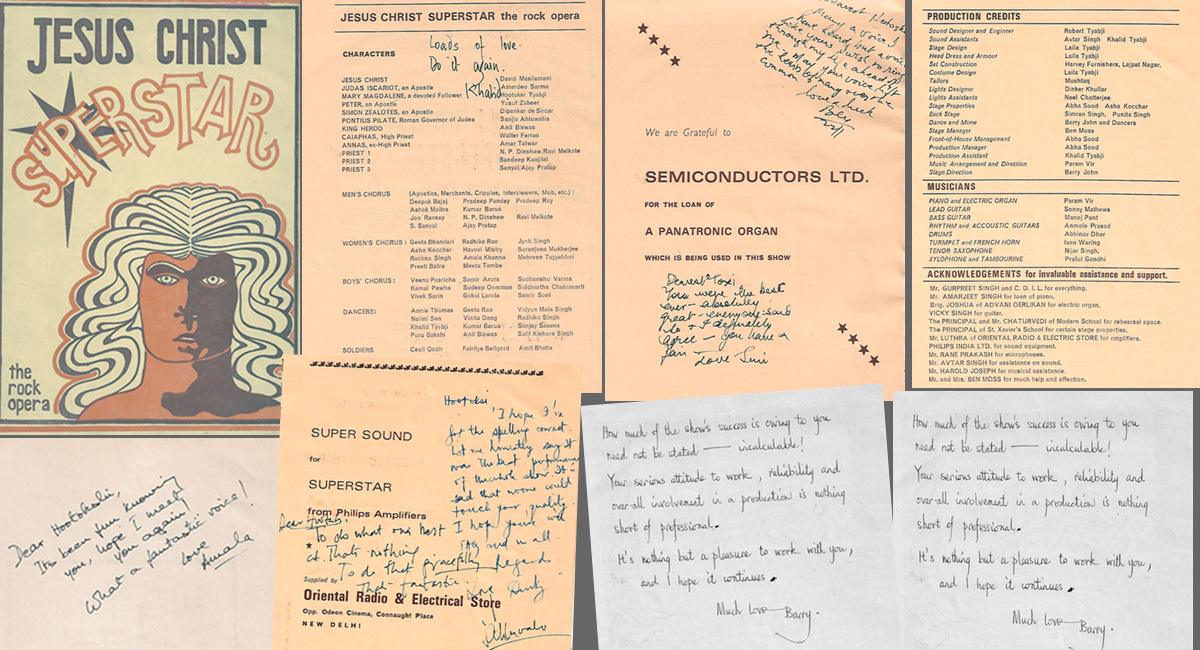 JESUS CHRIST
SUPERSTAR
the
rock
opera
JESUS CHRIST SUPERSTAR the rock opera
CHARACTERS
Loads of love.
Do it again.
Khalid
JESUS CHRIST David Masilamani
JUDAS ISCARIOT, an Apostle Amardeo Sarma
MARY MAGDALENE, a devoted Follower Hootoksi Tyabji
PETER, an Apostle Yusuf Zuheer
SIMON ZEALOTES, an Apostle Dipankar de Sircar
PONTIUS PILATE, Roman Governor of Judea Sanjiv Ahluwalia
KING HEROD Anil Biswas
CAIAPHAS, High Priest Walter Ferrao
ANNAS, ex-High Priest Amar Talwar
PRIEST 1 N. P. Dinshaw Ravi Melkote
PRIEST 2 Sandeep Kanjilal
PRIEST 3 Sanyal/Ajay Pratap
MEN'S CHORUS (Apostles, Merchants, Cripples, Interviewers, Mob, etc.) :
Deepak Bajaj Pradeep Pandey Pradeep Roy
Ashok Moitra Kumar Barua
Jon Ransey N. P. Dinshaw Ravi Melkote
S. Sanyal Ajay Pratap
WOMEN'S CHORUS : Geeta Bhandari Radhika Rao Jyoti Singh
Asha Kocchar Havovi Mistry Suranjana Mukherjee
Rachna Singh Amala Khanna Mehreen Tayyebhoi
Preeti Batra Meeta Tambe
BOYS' CHORUS : Veenu Pasricha Samir Arora Sudhanshu Varma
Kamal Pawha Sudeep Oommen Siddhartha Chakravarti
Vivek Sarin Gokul Larote Samir Soni
DANCERS: Annie Thomas Geeta Rao Vidyun Mala Singh
Nolini Sen Vinita Dang Radhika Singh
Khalid Tyabji Kumar Barua Sanjay Saxena
Puru Bakshi Anil Biswas Salil Kishore Singh
SOLDIERS Cecil Qadir Fairlye Bellgard Amit Bhatia
Dearest Hootoksi
Meeku a voice I
have heard but a voice
like yours
through my life
May your voice
We are Grateful to
SEMICONDUCTORS LTD.
FOR THE LOAN OF
A PANATRONIC ORGAN
WHICH IS BEING USED IN THIS SHOW
Dearest Toxi
You were the best
ever - absolutely
great - everyone said
so & I definately
agree - you have a
fan Love Simi
PRODUCTION CREDITS
Sound Designer and Engineer Robert Tyabji
Sound Assistants Avtar Singh Khalid Tyabji
Stage Design Laila Tyabji
Head Dress and Armour Laila Tyabji
Set Construction Harvey Furnishers, Lajpat Nagar,
Costume Design Laila Tyabji
Tailors Mushtaq
Lights Designer Dinker Khullar
Lights Assistants Neel Chatterjee
Stage Properties Abha Sood Asha Kocchar
Back Stage Simran Singh, Punita Singh
Dance and Mime Barry John and Dancers
Stage Manager Ben Moss
Front-of-House Management Abha Sood
Production Manager Abha Sood
Production Assistant Khalid Tyabji
Music Arrangement and Direction Param Vir
Stage Direction Barry John
MUSICIANS
PIANO and ELECTRIC ORGAN Param Vir
LEAD GUITAR Sonny Mathews
BASS GUITAR Manoj Pant
RHYTHM and ACCOUSTIC GUITARS Anmole Prasad
DRUMS Abhinav Dhar
TURMPET and FRENCH HORN Ivan Waring
TENOR SAXOPHONE Nijar Singh,
XYLOPHONE and TAMBOURINE Praful Gandhi
ACKNOWLEDGEMENTS for invaluable assistance and support.
Mr. GURPREET SINGH and C. D. I. L. for everything.
Mr. AMARJEET SINGH for loan of piano.
Brig. JOSHUA of ADVANI OERLIKAN for electric organ.
VICKY SINGH for guitar.
The PRINCIPAL and Mr. CHATURVEDI of Modern School for rehearsal space.
The PRINCIPAL of St. Xavier's School for certain stage properties.
Mr. LUTHRA of ORIENTAL RADIO & ELECTRIC STORE for amplifiers.
PHILIPS INDIA LTD. for sound equipment.
Mr. RANE PRAKASH for microphones.
Mr. AVTAR SINGH for assistance on sound.
Mr. HAROLD JOSEPH for musical assistance.
Mr. and Mrs. BEN MOSS for much help and effection.
Dear Hootokshi,
Its been fun knowing
you, hope I meet
you again!
What a fantastic voice!
love
Amala
Hootoksi
'I hope I've
got the spelling correct.
Let me honestly say it
was the best performance
of the whole show. It is
said that no one could
touch your quality.
I hope you
SUPER SOUND
for
SUPERSTAR
from Philips Amplifiers
To do what one's best
at. That's nothing
To do that gracefully
That's fantastic.
Regards
Love
Supplied by
Oriental Radio & Electrical Store
Opp. Odeon Cinema, Connaught Place
NEW DELHI
How much of the show's success is owing to you
need not be stated — incalculable!
Your serious attitude to work, reliability and
over-all involvement in a production is nothing
short of professional.
It's nothing but a pleasure to work with you,
and I hope it continues.
Much Love Barry.
How much of the show's success is owing to you
need not be stated — incalculable!
Your serious attitude to work, reliability and
over-all involvement in a production is nothing
short of professional.
It's nothing but a pleasure to work with you,
and I hope it continues.
Much Love Barry.